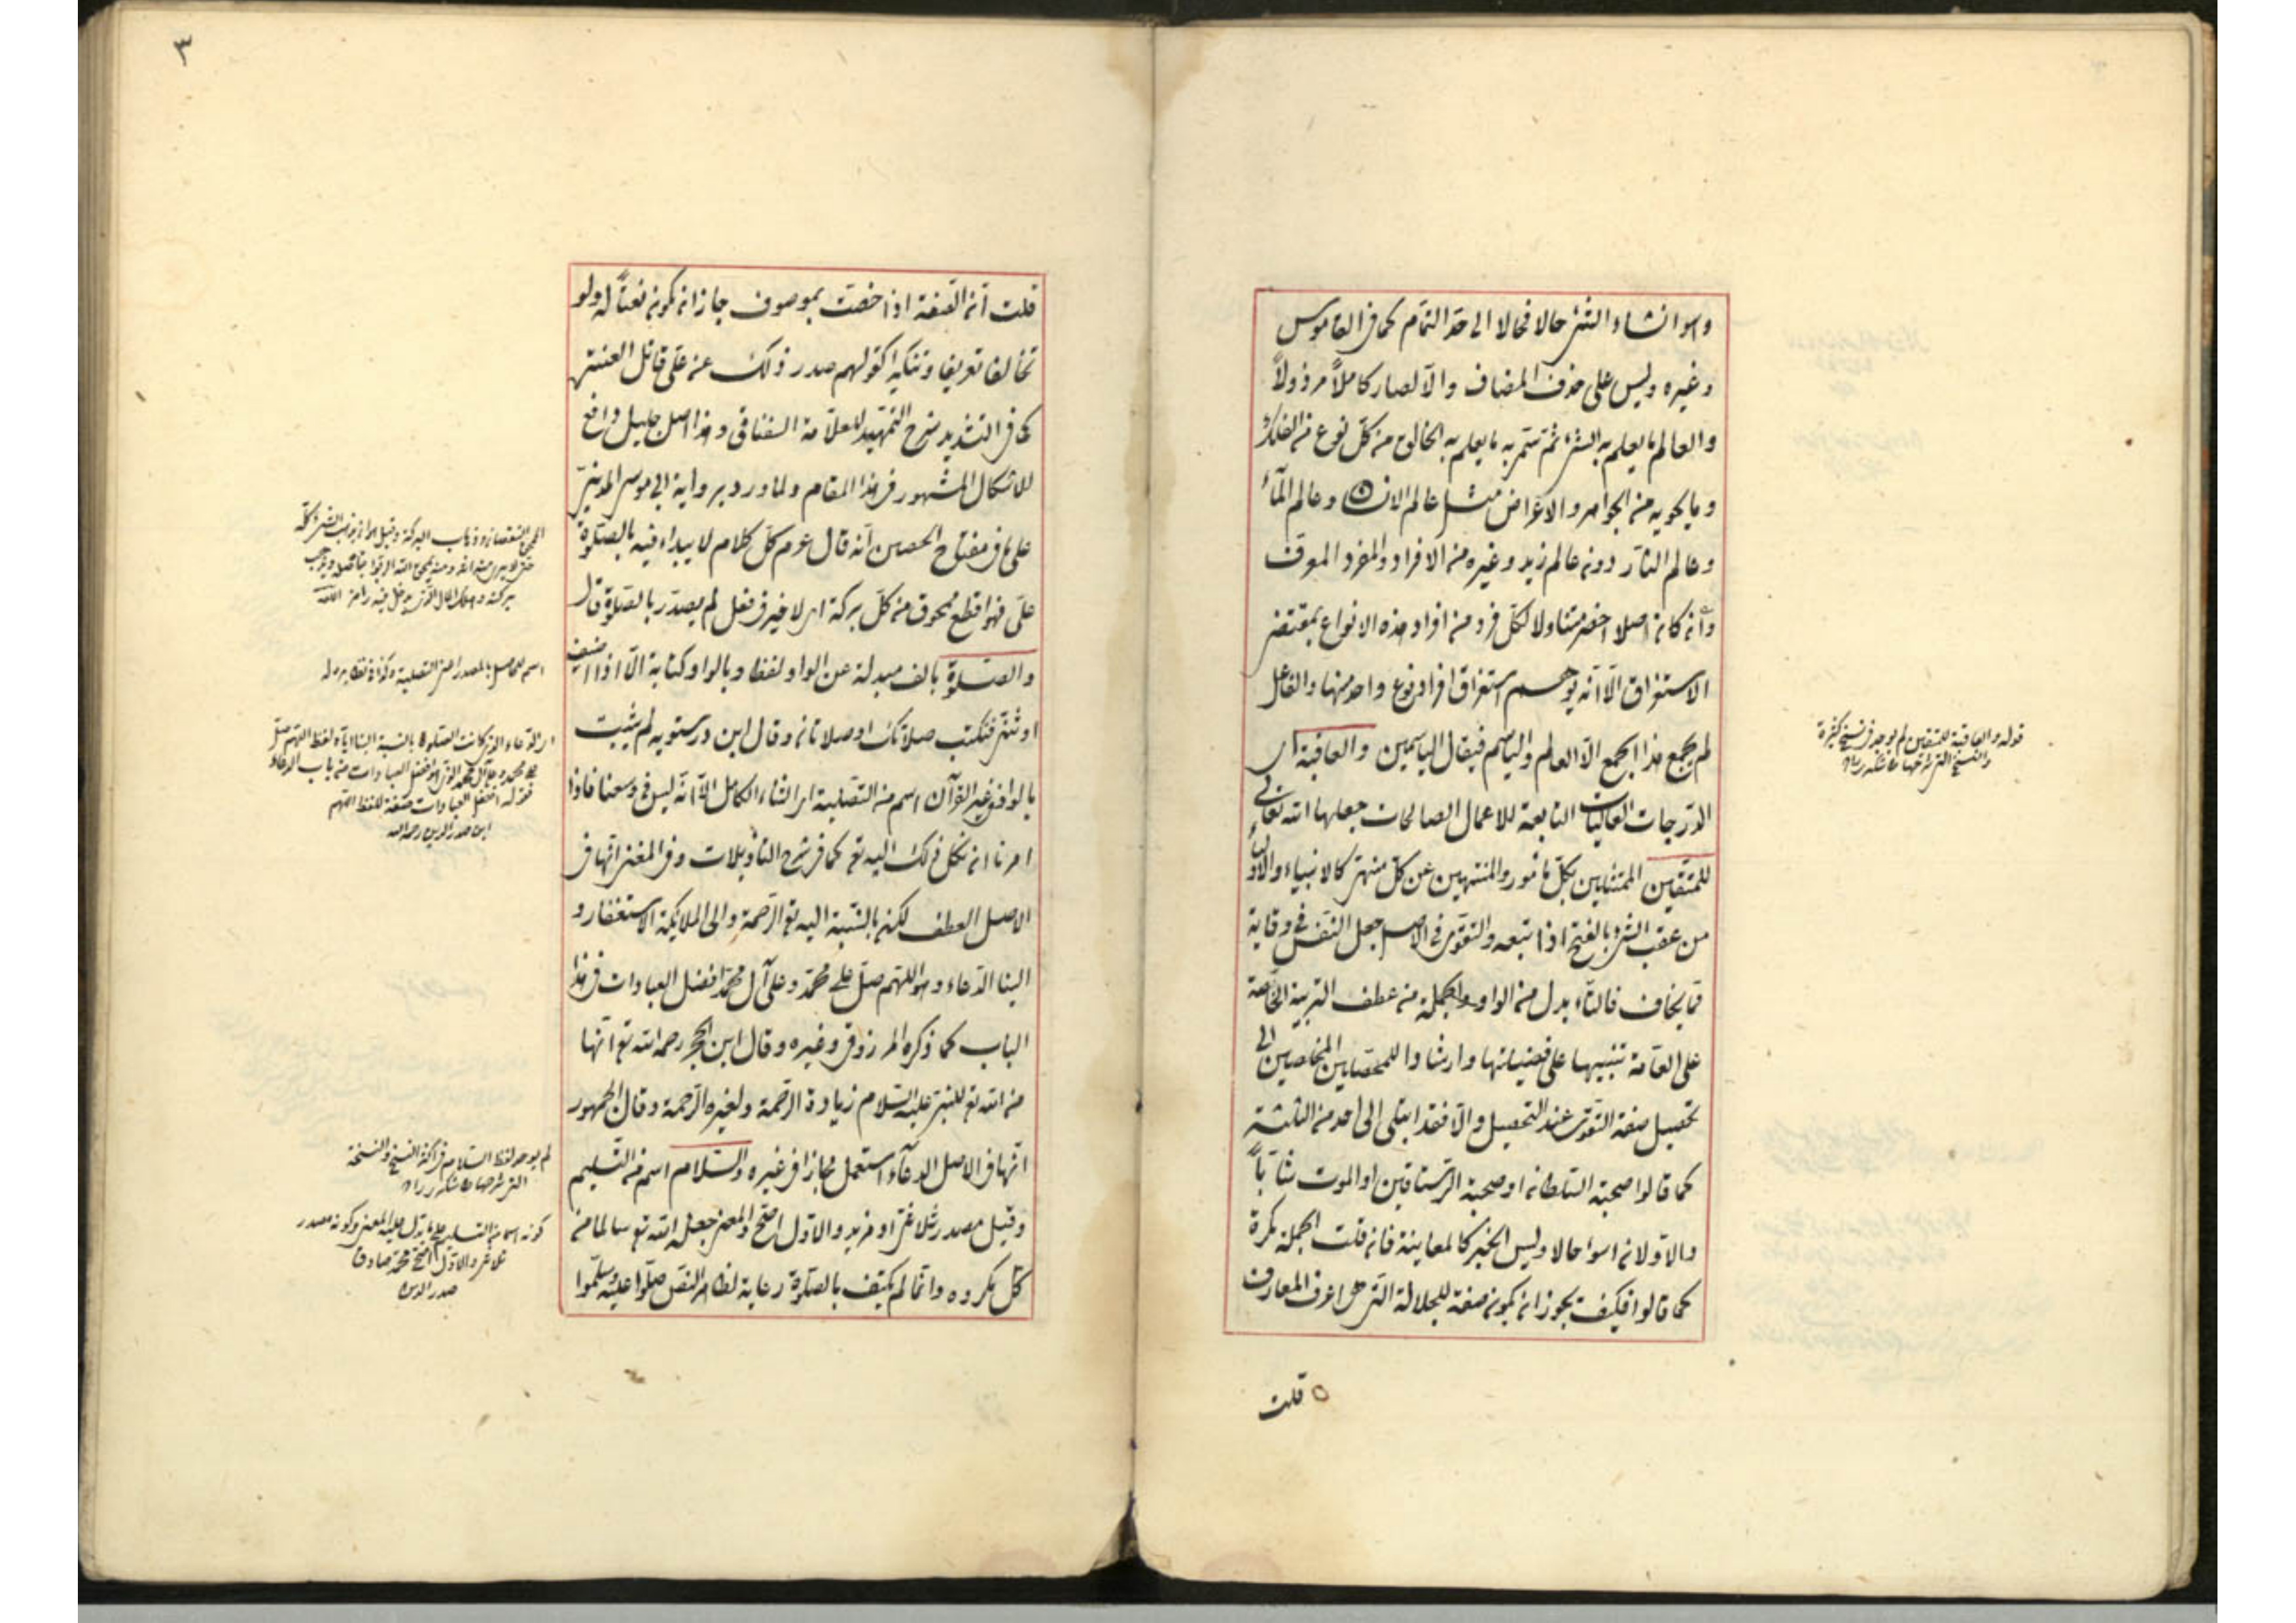 وهو انشاء الشئ حالا فحالا الى حد التمام كما في القاموس
وغيره وليس على حذف المضاف والا لصار كاملا مرذولا
والعالم ما يعلم به الشئ ثم سمى به ما يعلم به الخالق من كل نوع من الفلك
وما يحويه من الجواهر والاعراض مثل عالم الانس وعالم الماء
وعالم النار دون عالم زيد وغيره من الافراد والمفرد المعرف
وانه كان اصلا اخصر متناولا لكل فرد من افراد هذه الانواع بمقتضى
الاستغراق الا انه يوهم استغراق افراد نوع واحد منها والفاعل
لم يجمع هذا الجمع الا العالم والياسم فيقال الياسمين والعاقبة اى
الدرجات العاليات التابعة للاعمال الصالحات جعلها الله تعالى
للمتقين الممتثلين بكل مأمور والمنتهين عن كل منهى كالانبياء والاولياء
من عقب الشئ بالفتح اذا تبعه والتقوى فى الاصل جعل النفس فى وقاية
مما يخاف فالتاء بدل من الواو والجملة من عطف التربية الخاصة
على العامة تنبيها على فضيلتها وارشادا للمحصلين المخلصين الى
تحصيل صفة التقوى عند التحصيل والا فقد ابتلى الى احد من الثلثة
كما قالوا صحبة السلطان او صحبة الرستاقين او الموت شابا
والاولان اسوا حالا وليس الخبر كالمعاينة فان قلت الجملة نكرة
كما قالوا فكيف يجوز ان يكون صفة للجلالة التى هى اعرف المعارف
قلت
قوله والعاقبة للمتقين لم يوجد فى نسخ كثيرة
٣
قلت ان الصفة اذا خصت بموصوف جاز ان يكون نعتا له ولو
تخالفا تعريفا وتنكيرا كقولهم صدر ذلك عن على قاتل العنتر
كما فى التسديد شرح التمهيد للعلامة السغناقى وهذا اصل جليل دافع
للاشكال المشهور فى هذا المقام ولما ورد برواية ابى موسى المدينى
على ما فى مفتاح الحصين انه قال عوم كل كلام لا يبدأ فيه بالصلوة
على فهو اقطع ممحوق من كل بركة اى لا خير فى فعل لم يصدر بالصلوة قال
والصلوة بالف مبدلة عن الواو لفظا وبالواو كتابة الا اذا اضيف
او ثنى فتكتب صلاتك او صلاتان وقال ابن درستويه لم يثبت
بالواو فى غير القرآن اسم من التصلية اى الثناء الكامل الا انه ليس فى وسعنا فاذا
امرنا ان نكل ذلك اليه تع كما فى شرح التأويلات وفى المغنى انها فى
الاصل العطف لكن بالنسبة اليه تع الرحمة والى الملائكة الاستغفار و
الينا الدعاء وهو اللهم صل على محمد وعلى آل محمد افضل العبادات فى هذا
الباب كما ذكره المرزوقى وغيره وقال ابن الحجر رحمه الله تع انها
من الله تع للنبى عليه السلام زيادة الرحمة ولغيره الرحمة وقال الجمهور
انها فى الاصل الدعاء استعمل مجازا فى غيره والسلام اسم من التسليم
وقيل مصدر ثلاثى او مزيد والاول اصح والمعنى جعل الله تع سالما من
كل مكروه وانما لم يكتف بالصلوة رعاية لظاهر النص صلوا عليه وسلموا
اسم للحاصل بالمصدر اعنى التصلية وكذا نظايره
قوله افضل العبادات صفة للفظ اللهم
ابن صدر الدين رحمه الله
لم يوجد لفظ السلام فى اكثر النسخ والنسخة
كونه اسما من التسليم مما يدل عليه المعنى وكونه مصدر
ثلاثى والاول اصح محمد صادق
صدر الدين